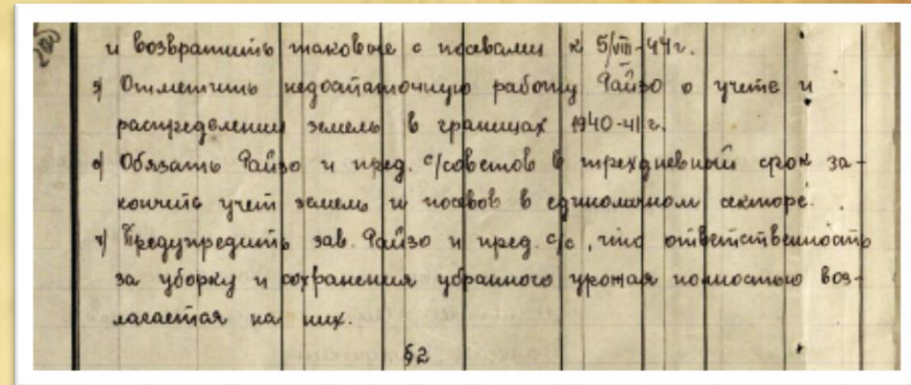 и возвратить таковые с посевами к 5/VIII-44г.
5) Отметить недостаточную работу Райзо о учете и
распределении земель в границах 1940-41г.
6) Обязать Райзо и пред. с/советов в трехдневный срок за-
кончить учет земель и посевов в единоличном секторе.
7) Предупредить зав. Райзо и пред. с/с, что ответственность
за уборку и сохранения убранного урожая полностью воз-
лагается на них.
§2